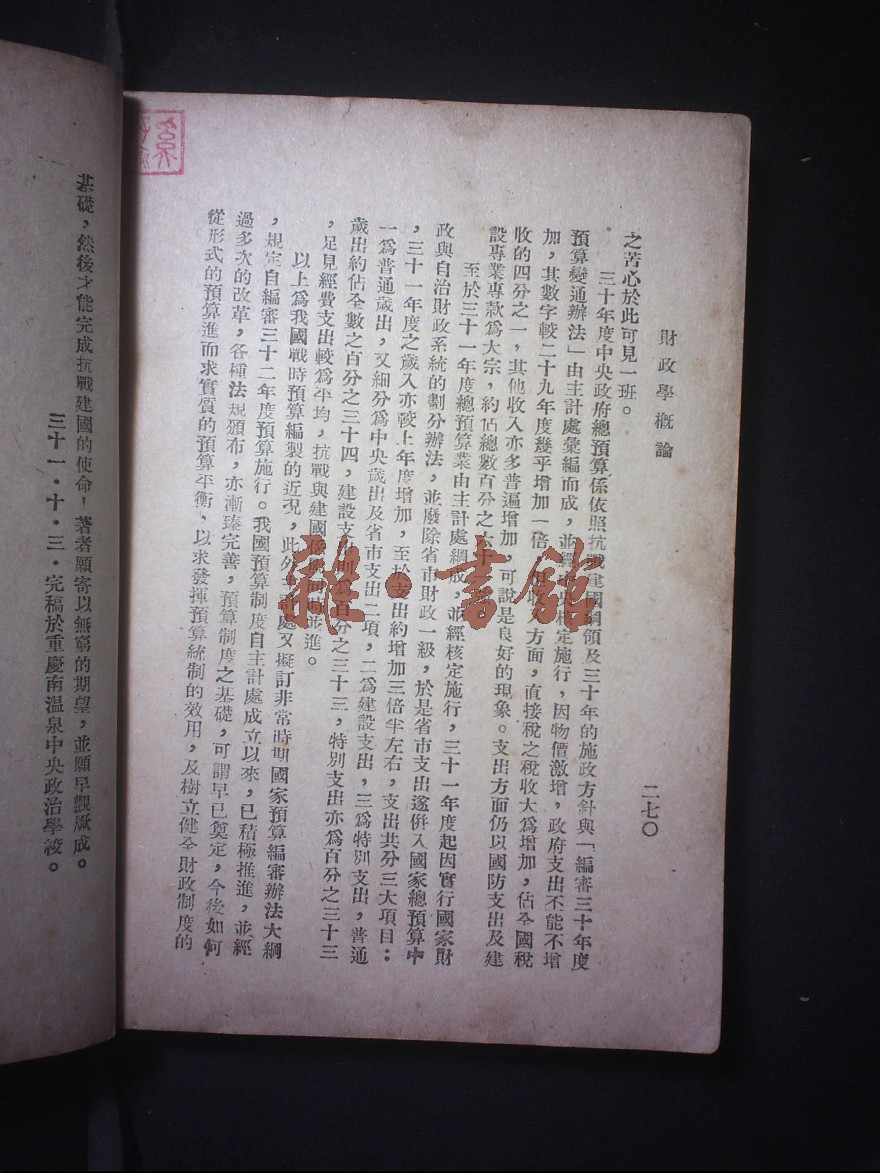 財政學概論
二七〇
之苦心於此可見一班。
三十年度中央政府總預算係依照抗戰建國綱領及三十年的施政方針與「編審三十年度
預算變通辦法」由主計處彙編而成，並經中央核定施行，因物價激增，政府支出不能不增
加，其數字較二十九年度幾乎增加一倍，但收入方面，直接稅之稅收大為增加，佔全國稅
收的四分之一，其他收入亦多普遍增加，可說是良好的現象。支出方面仍以國防支出及建
設專業專款為大宗，約佔總數百分之六十
至於三十一年度總預算業由主計處編成，並經核定施行，三十一年度起因實行國家財
政與自治財政系統的劃分辦法，並廢除省市財政一級，於是省市支出遂併入國家總預算中
，三十一年度之歲入亦較上年度增加，至於支出約增加三倍半左右，支出共分三大項目：
一為普通歲出，又細分為中央歲出及省市支出二項，二為建設支出，三為特別支出，普通
歲出約佔全數之百分之三十四，建設支出則為百分之三十三，特別支出亦為百分之三十三
，足見經費支出較為平均，抗戰與建國係同時並進。
以上為我國戰時預算編製的近況，此外主計處又擬訂非常時期國家預算編審辦法大綱
，規定自編審三十二年度預算施行。我國預算制度自主計處成立以來，已積極推進，並經
過多次的改革，各種法規頒布，亦漸臻完善，預算制度之基礎，可謂早已奠定，今後如何
從形式的預算進而求實質的預算平衡，以求發揮預算統制的效用，及樹立健全財政制度的
基礎，然後才能完成抗戰建國的使命！著者願寄以無窮的期望，並願早觀厥成。
三十一・十・三・完稿於重慶南溫泉中央政治學校。
雜・書館